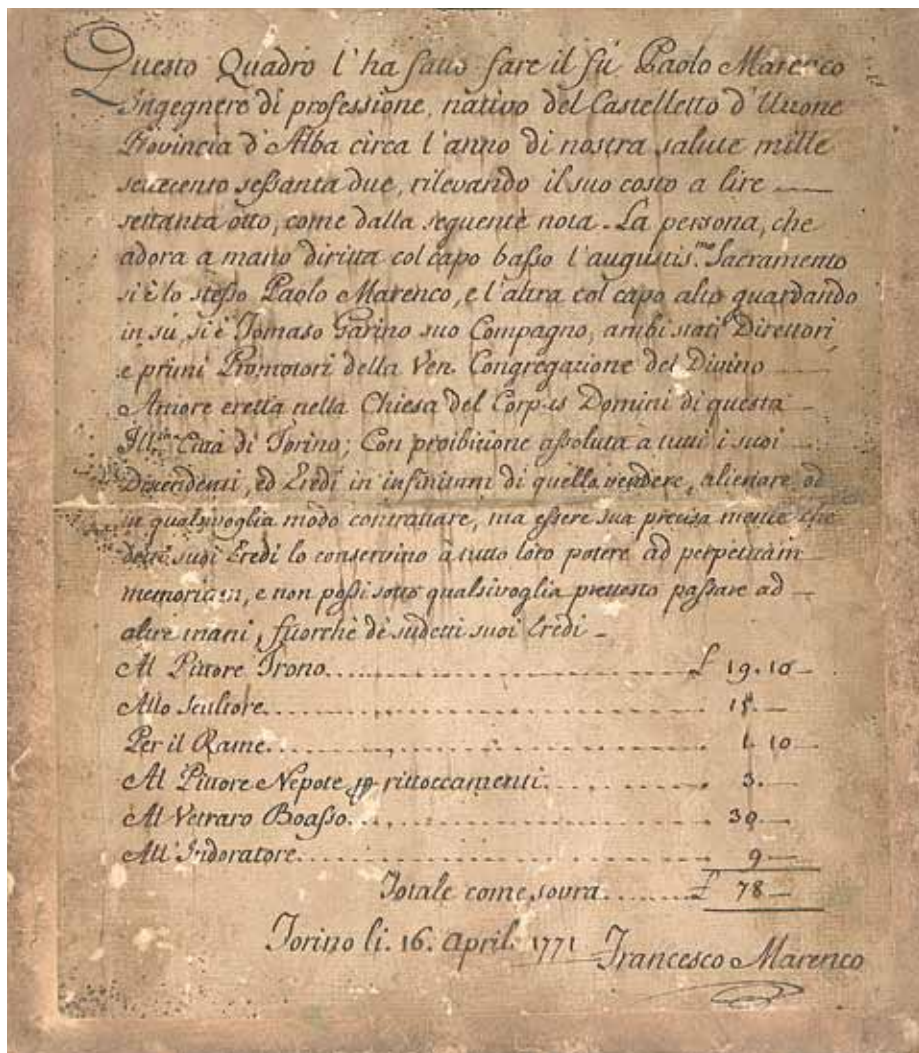 Questo Quadro l'ha fatto fare il fù Paolo Marenco
Ingegnere di professione, nativo del Castelletto d'Uzone
Provincia d'Alba circa l'anno di nostra salute mille
settecento sessanta due, rilevando il suo costo a lire
settanta otto, come dalla seguente nota. La persona, che
adora a mano diritta col capo basso l'augustis.mo Sacramento
si è lo stesso Paolo Marenco, e l'altra col capo alto guardando
in sù, si è Tomaso Garino suo Compagno, ambi stati Direttori,
e primi Promotori della Ven. Congregazione del Divino
Amore eretta nella Chiesa del Corpus Domini di questa
Ill.ma Città di Torino; Con proibizione assoluta à tutti i suoi
Discendenti, ed Eredi in infinitum di quello vendere, alienare, od
in qualsivoglia modo contrattare, ma essere sua precisa mente che
detti suoi Eredi lo conservino à tutto loro potere ad perpetuam
memoriam, e non possi sotto qualsivoglia pretesto passare ad
altre mani, fuorchè de sudetti suoi Eredi
Al Pittore Trono £ 19.10
Allo Scultore 15.
Per il Rame 1.10
Al Pittore Nepote pp rittoccamenti 3.
Al Vetraro Boasso 30
All'Indoratore 9
Totale come sovra £ 78
Torino li. 16. April. 1771 Francesco Marenco